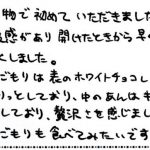 物で初めていただきました
感があり 開けたときから
くしました。
ごもりは表のホワイトチョコレ
りっとしており、中のあんは
しており、贅沢さを感じまし
ごもりも食べてみたいです